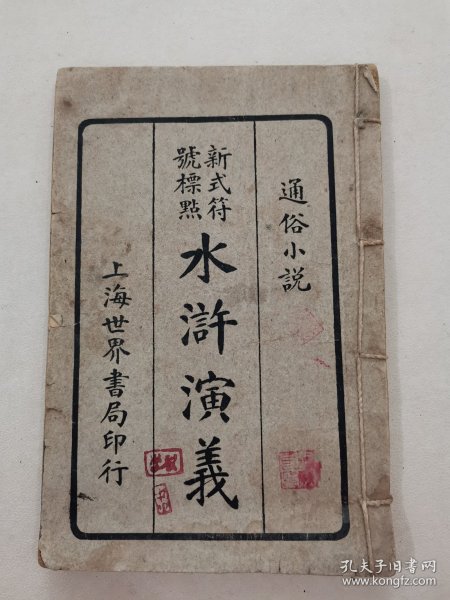 通俗小説
新式符
號標點
水滸演義
上海世界書局印行
孔夫子旧书网
www.kongfz.com